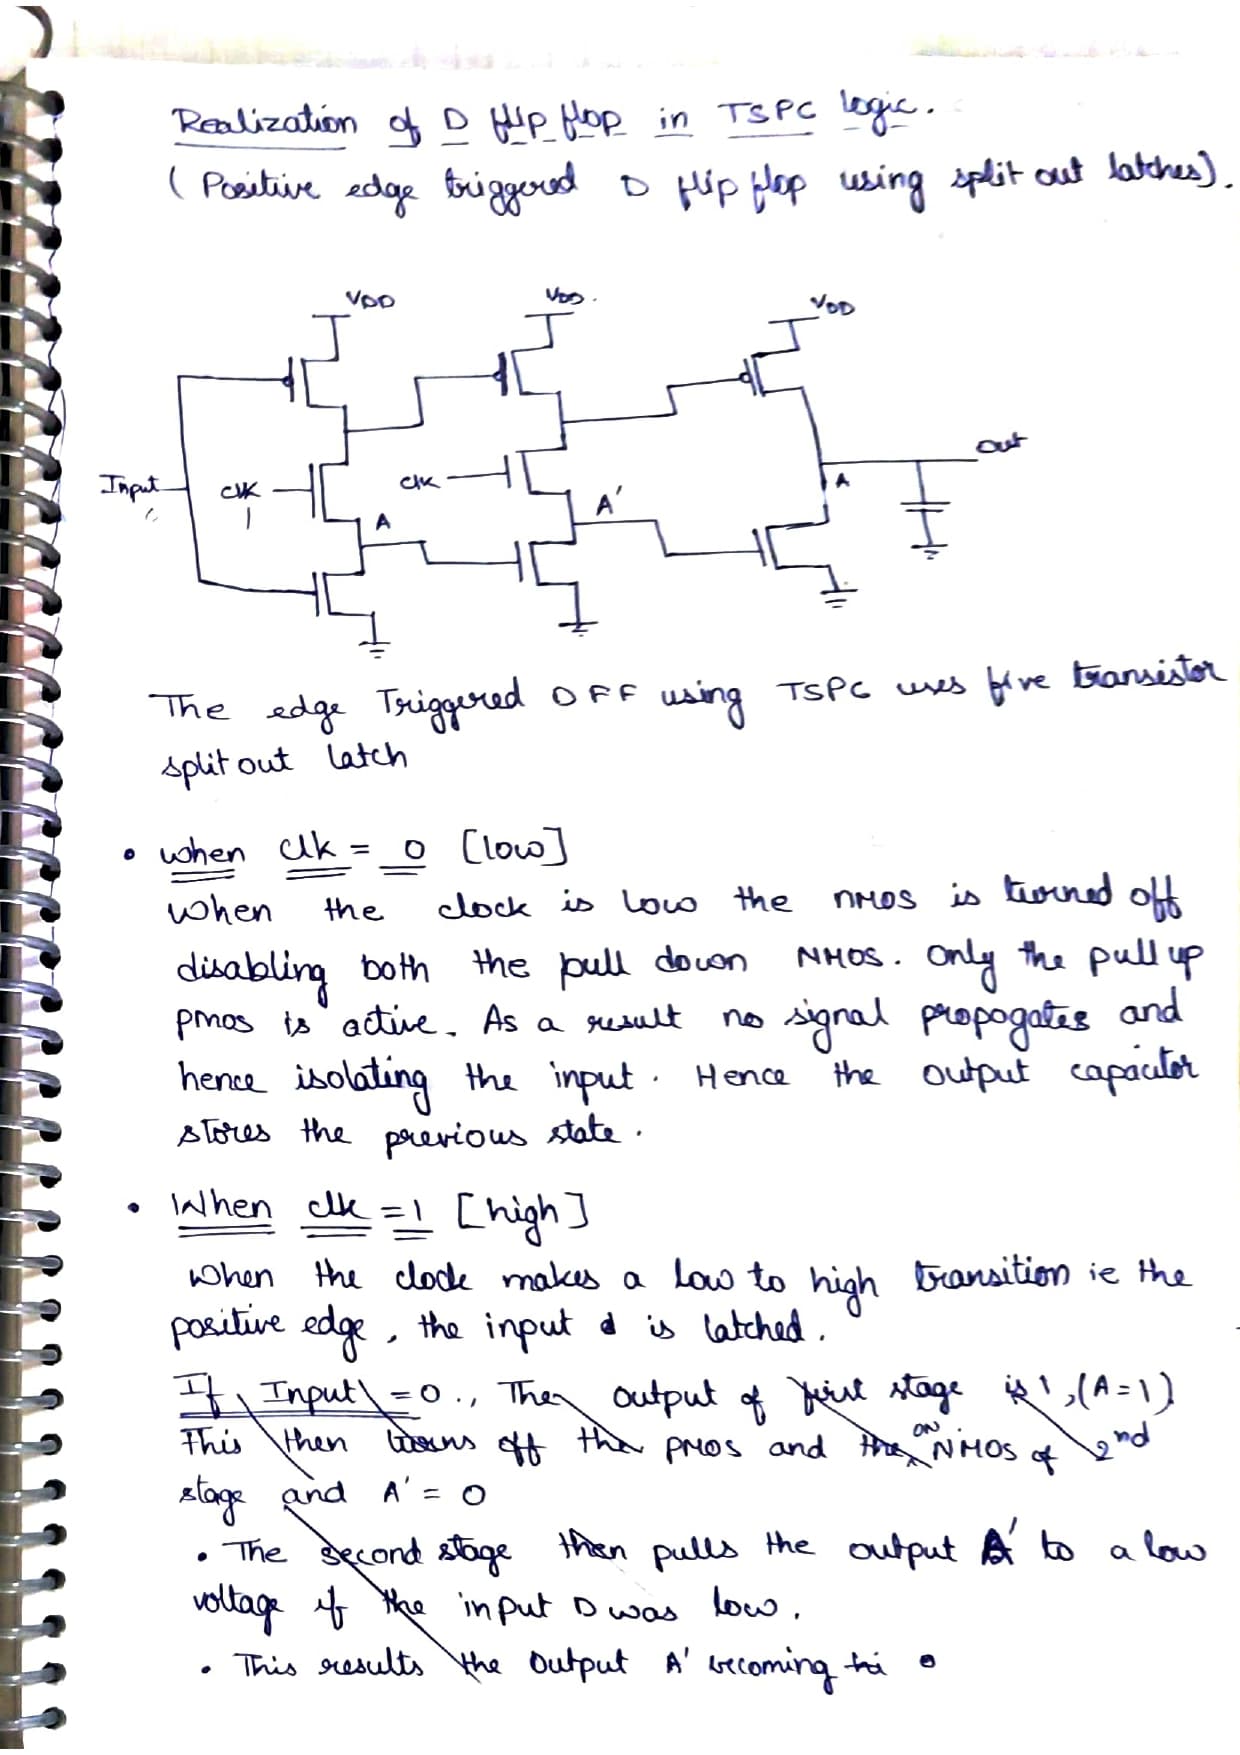 Realization of D flip flop in TSPC logic.
( Positive edge triggered D flip flop using split out latches).
VDD
VDD.
VDD
Out
Input
clk
clk
A
A'
A
The edge Triggered DFF using TSPC uses five transistor
split out latch
• when clk = 0 [low]
When the clock is low the nMOS is turned off
disabling both the pull down NMOS. Only the pull up
pmos is active. As a result no signal propogates and
hence isolating the input. Hence the output capacitor
stores the previous state.
• When clk = 1 [high]
When the clock makes a low to high transition ie the
positive edge, the input d is latched.
If Input = 0., The output of first stage is 1, (A = 1)
This then turns off the PMOS and the ON NMOS of 2nd
stage and A' = 0
• The second stage then pulls the output A' to a low
voltage if the input D was low.
• This results the output A' becoming